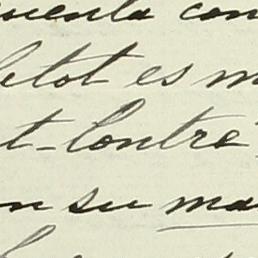 cuenta con
letot es m
t-Contre
on su ma